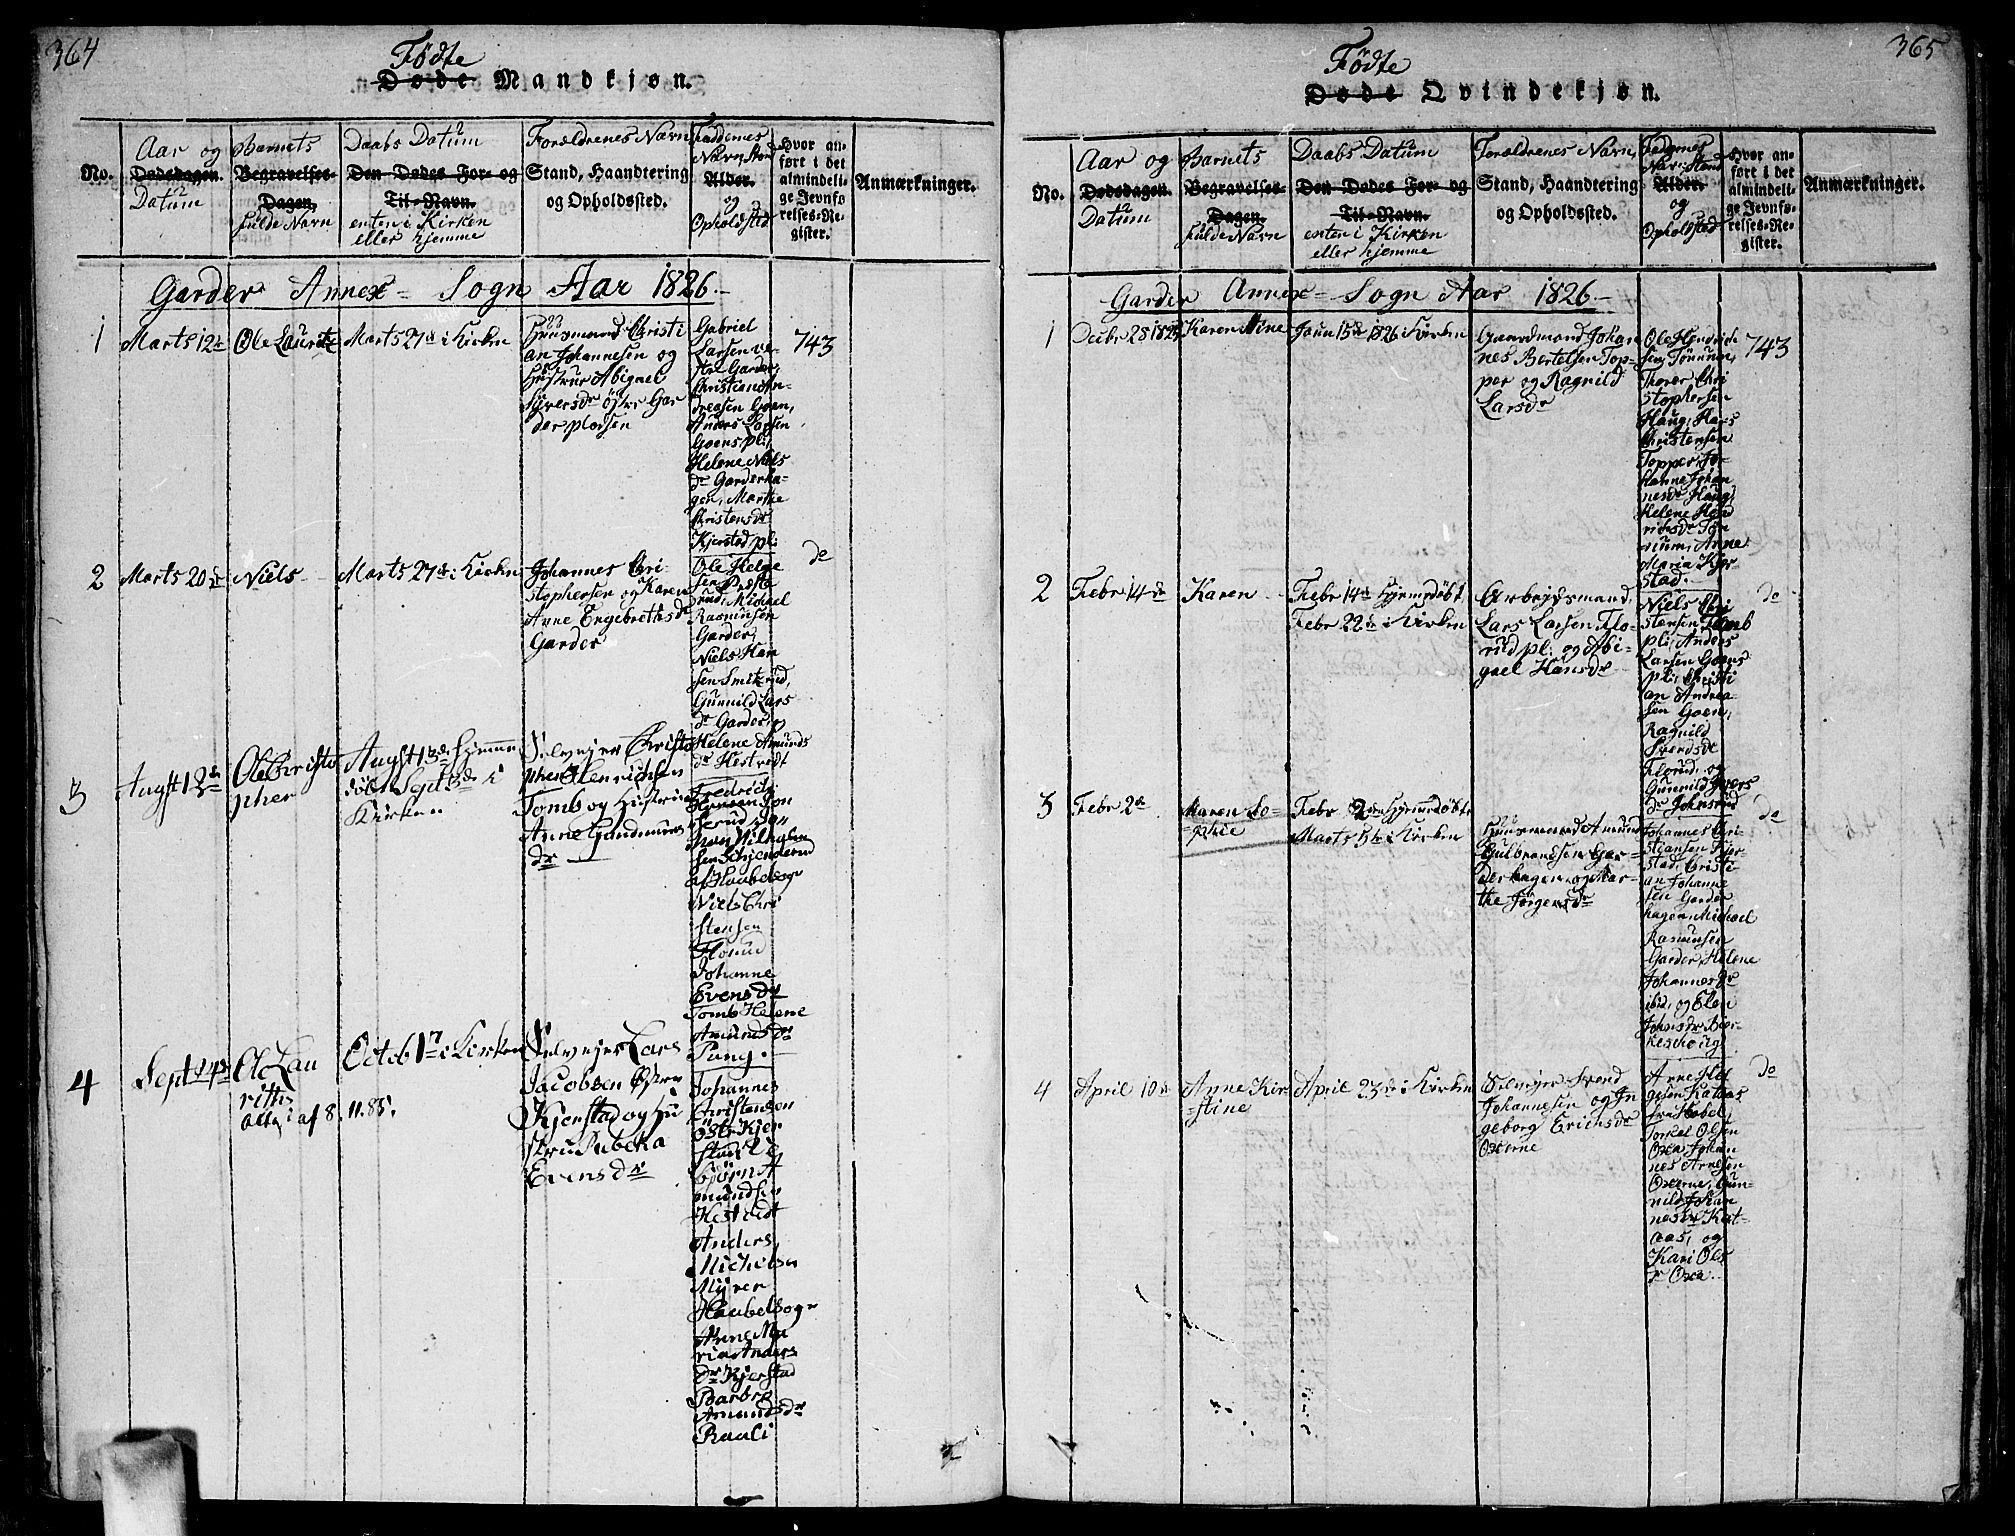 364
Födte
Døde Mandkjøn.
No.
Aar og
Dødsdagen.
Datum
Barnets
Begravelses-
Dagen,
fulde Navn
Daabs Datum
Den Dødes For- og
Til-Navn.
enten i Kirken
eller hjemme
Forældrenes Navn
Stand, Haandtering
og Opholdssted.
Faddernes
Navn, Stand
Alder.
og
Opholdsted
Hvor an-
ført i det
almindeli-
ge Jevnfø-
relses-Re-
gister.
Anmærkninger.
Garder Annex- Sogn Aar 1826.-
1
Marts 12te
Ole Lauritz
Marts 27de i Kirken
Huusmand Christi
an Johannesen og
Hustrue Abigael
Siversdr östre Gar
der pladsen
Gabriel
Larsen ve-
stre Garder,
Christian An-
dreasen Goen,
Anders Larsen
Goens pl:
Helene Niels
dr Garderha-
gen, Marthe
Christensdr
Kjerstad pl:
743
2
Marts 20de
Niels
Marts 27de i Kirken
Johannes Chri-
stophersen og Karen
Anne Engebrethsdr
Garder
Ole Helge
sen Præste
rud, Michael
Rasmusen
Garder,
Niels Han
sen Smitsrud,
Gunnild Lars
dr Garder, og
Helene Amunds
dr Hestvedt
do
3
Augst 13de
Ole Christo
pher
Augst 13de Hjemme
döbt Sept 3de i
Kirken
Selveier Christo
pher Henrichsen
Tomb og Hustrue
Anne Gundmunds
dr
Fredrich
Hansen Jon
serud,
Niels Chri
stensen
Florud
Johanne
Evensdr
Tomb Helene
Amunds dr
Pung.
4
Sept 14de
Ole Lau
rith
Attest af 8. 11. 85.
Octob 1te i Kirken
Selveier Lars
Jacobsen Östre
Kjerstad og Hu
stru Rebeka
Evensdr
Johannes
Christensen
Östr Kjer
stad
björn A
mundsen
Hestvedt
Anders
Michelsen
Myrer
Haabel sogn
Anne Ma
ria Anders
dr Kjerstad
Barbro
Amundsdr
Raali
365
Födte
Døde Qvindekjøn.
No.
Aar og
Dødsdagen.
Datum
Barnets
Begravelses-
Dagen.
fulde Navn
Daabs Datum
Den Dødes For- og
Til-Navn.
enten i Kirken
eller hjemme
Forældrenes Navn,
Stand, Haandtering
og Opholdssted.
Faddernes
Navn, Stand
Alder.
og
Opholdsted
Hvor an-
ført i det
almindeli-
ge Jevnfø-
relses-Re-
gister.
Anmærkninger.
Garder Annex- Sogn Aar 1826.-
1
Decbr 28 1825
Karen Stine
Janu 15de 1826 i Kirken
Gaardmand Johan
nes Bertelsen Top-
per og Ragnild
Larsdr
Ole Hendrich
sen Tönnum,
Thorer Chri
stophersen
Haug, Hans
Christensen
Topper Jo-
hanne Johan
nesdr Haug
Helene Hend
richsdr Tön
num, Anne
Maria Kjer
stad.
743
2
Febr 14de
Karen
Febr 14de Hjemedöbt
Febr 22de i Kirken
Arbejdsmand
Lars Larsen Flo-
rud pl: og Abi-
gael Hansdr
Niels Chri
stensen Tomb
pl: Anders
Larsen Goens
pl: Christi
an Andrea-
sen Goen,
Ragnild
Svendsdr
Florud, og
Gunnild Ivers
dr Johnsrud
do
3
Febr 2de
Maren So-
phie
Febr 2den Hjemedöbt
Marts 5te i Kirken
Huusmand Amund
Gulbrandsen Gar-
derhagen og Mar-
the Jörgensdr
Johannes Chri-
stiansen Kjer-
stad, Christi-
an Johanne
sen Garder
hagen, Michael
Rasmusen
Garder, Helene
Johannesdr
ibid, og Elen
Johnsdr Bier-
keschoug
do
4
April 10de
Anne Kir-
stine
April 23de i Kirken
Selvejer Svend
Johannesen og In
geborg Erichsdr
Oxerne
Arne Hel
gesen Kataas
fra Habel,
Torkel Olsen
Oxa, Johan
nes Arnesen
Oxerne, Gun-
nild Johan
nesdr Kat-
aas, og
Kari Ols
dr Oxa.
do